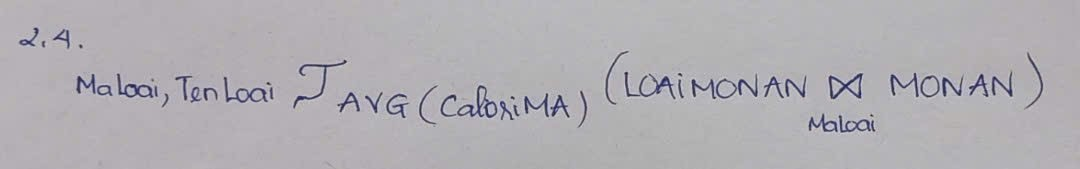 2.4.
Maloai, TenLoai ℑ AVG(CaloriMA) (LOAIMONAN ⋈ MONAN)
Maloai